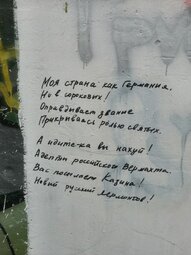 Моя страна как Германия,
Но в сороковых!
Оправдывает звание
Прикрываясь ролью святых.
А идите-ка вы нахуй!
Адепты российского Вермахта.
Вас посылает
Новый русский